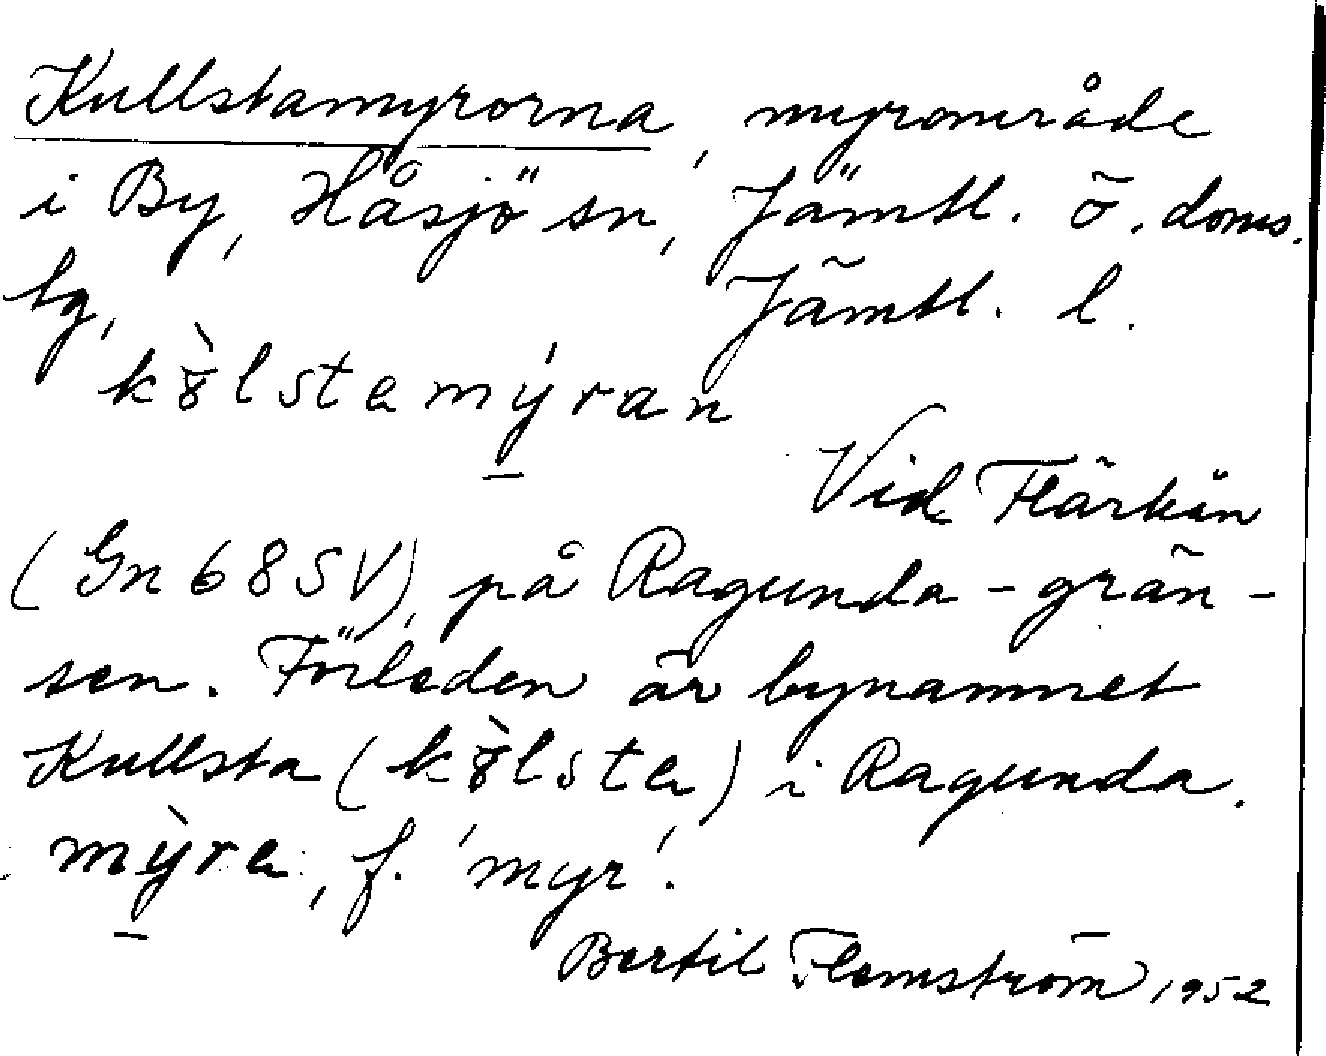 Kullstamyrorna, myrområde
i By, Håsjö sn, Jämtl. ö. doms.
lg, Jämtl. l.
kòlstamýran
Vid Flärkån
(Gn 68 SV), på Ragunda-grän-
sen. Förleden är bynamnet
Kullsta (kòlsta) i Ragunda.
mỳra, f. 'myr'.
Bertil Flemström 1952